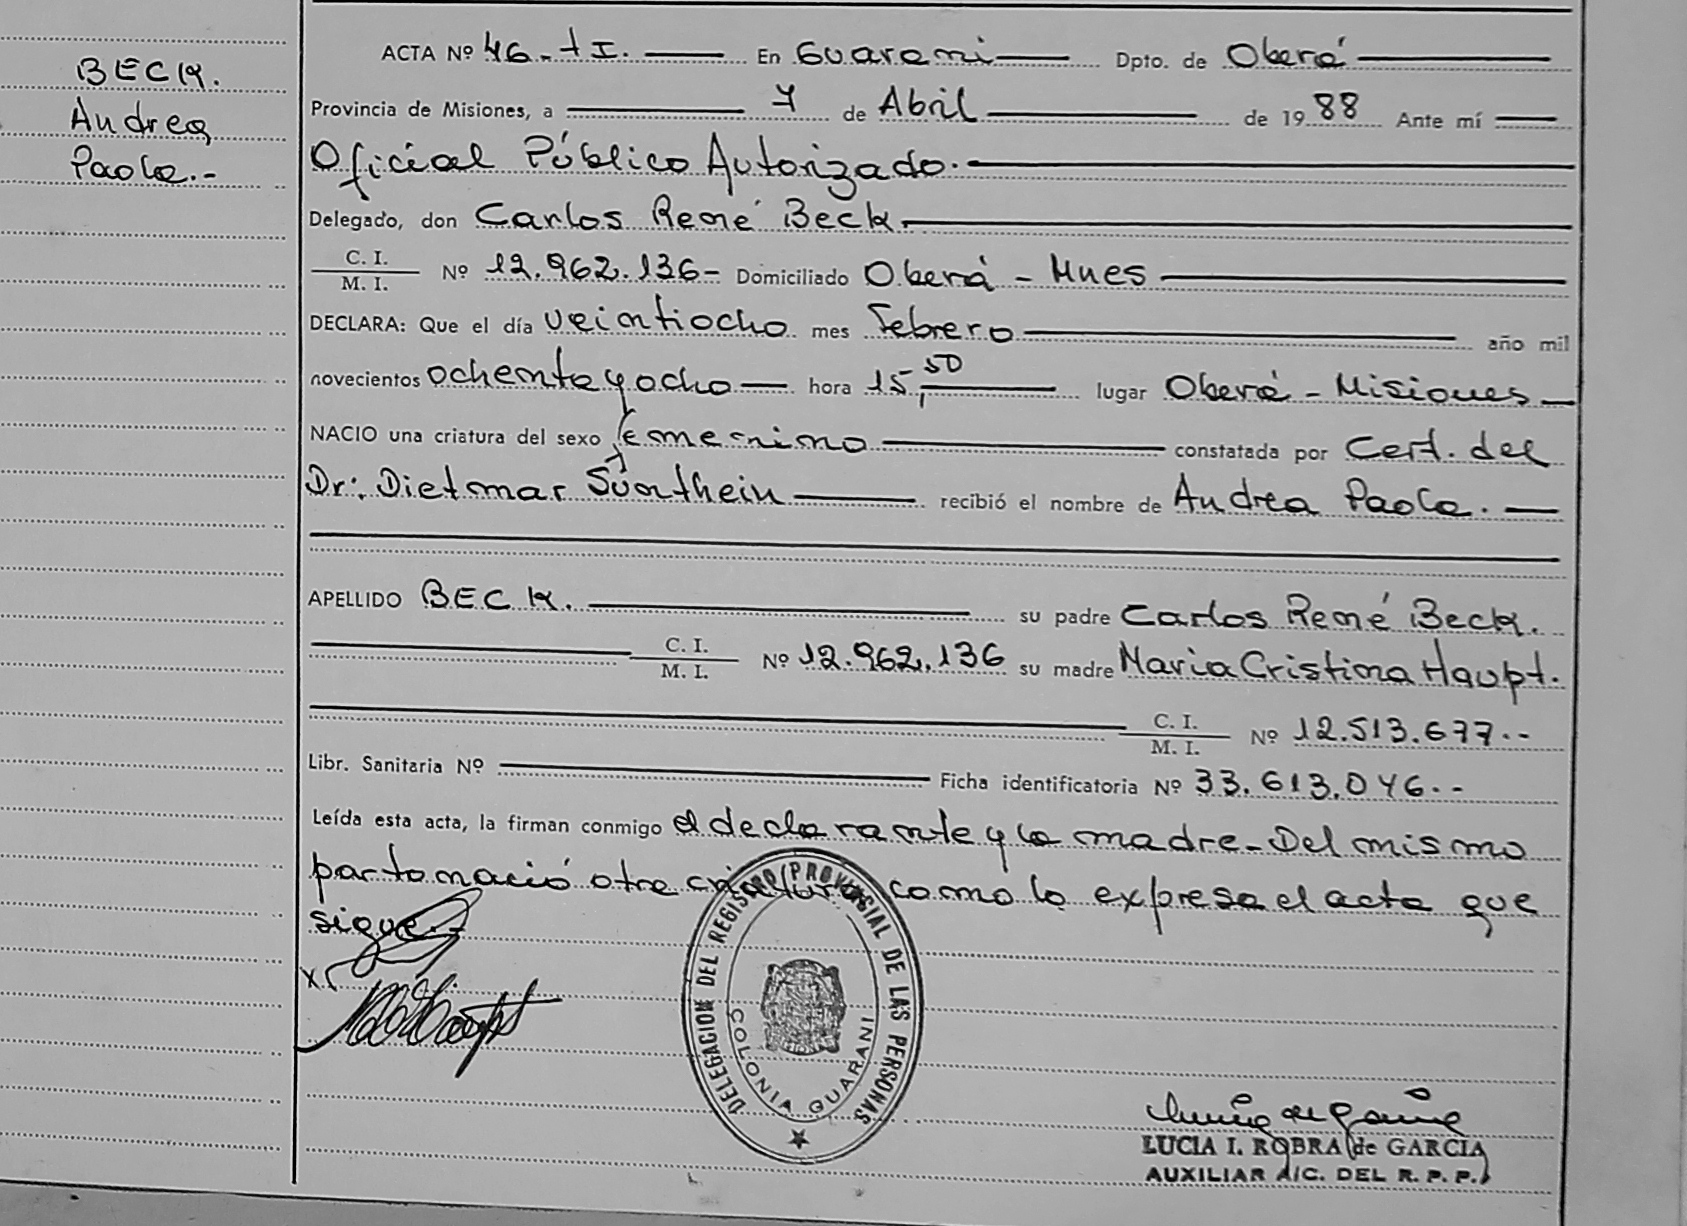 BECK.
Andrea
Paola.-
ACTA Nº 46.-tI. En Guarani Dpto. de Oberá
Provincia de Misiones, a 7 de Abril de 1988 Ante mí
Oficial Público Autorizado.-
Delegado, don Carlos René Beck
C. I.
M. I. Nº 12.962.136- Domiciliado Oberá - Mnes
DECLARA: Que el día veintiocho mes Febrero año mil
novecientos ochenta y ocho hora 15,50 lugar Oberá - Misiones
NACIO una criatura del sexo femenino constatada por Cert. del
Dr. Dietmar Sünthein recibió el nombre de Andrea Paola.
APELLIDO BECK. su padre Carlos René Beck.
C. I.
M. I. Nº 12.962.136 su madre Maria Cristina Haupt.
C. I.
M. I. Nº 12.513.677.--
Libr. Sanitaria Nº Ficha identificatoria Nº 33.613.046.--
Leída esta acta, la firman conmigo el declarante y la madre-Del mismo
parto nació otra criatura, como lo expresa el acta que
sigue.-
DELEGACION DEL REGISTRO PROVINCIAL DE LAS PERSONAS
COLONIA GUARANI
LUCIA I. ROBRA de GARCIA
AUXILIAR A/C. DEL R. P. P.